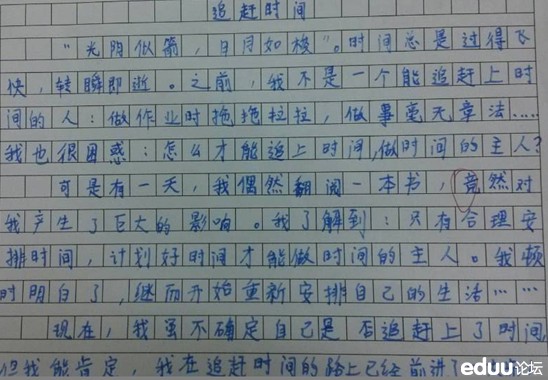 追赶时间
"光阴似箭，日月如梭"。时间总是过得飞
快，转瞬即逝。之前，我不是一个能追赶上时
间的人：做作业时拖拖拉拉，做事毫无章法……
我也很困惑：怎么才能追上时间，做时间的主人？
可是有一天，我偶然翻阅一本书，竟然对
我产生了巨大的影响。我了解到：只有合理安
排时间，计划好时间才能做时间的主人。我顿
时明白了，继而开始重新安排自己的生活……
现在，我虽不确定自己是否追赶上了时间，
但我能肯定，我在追赶时间的路上已经前进了
eduu论坛